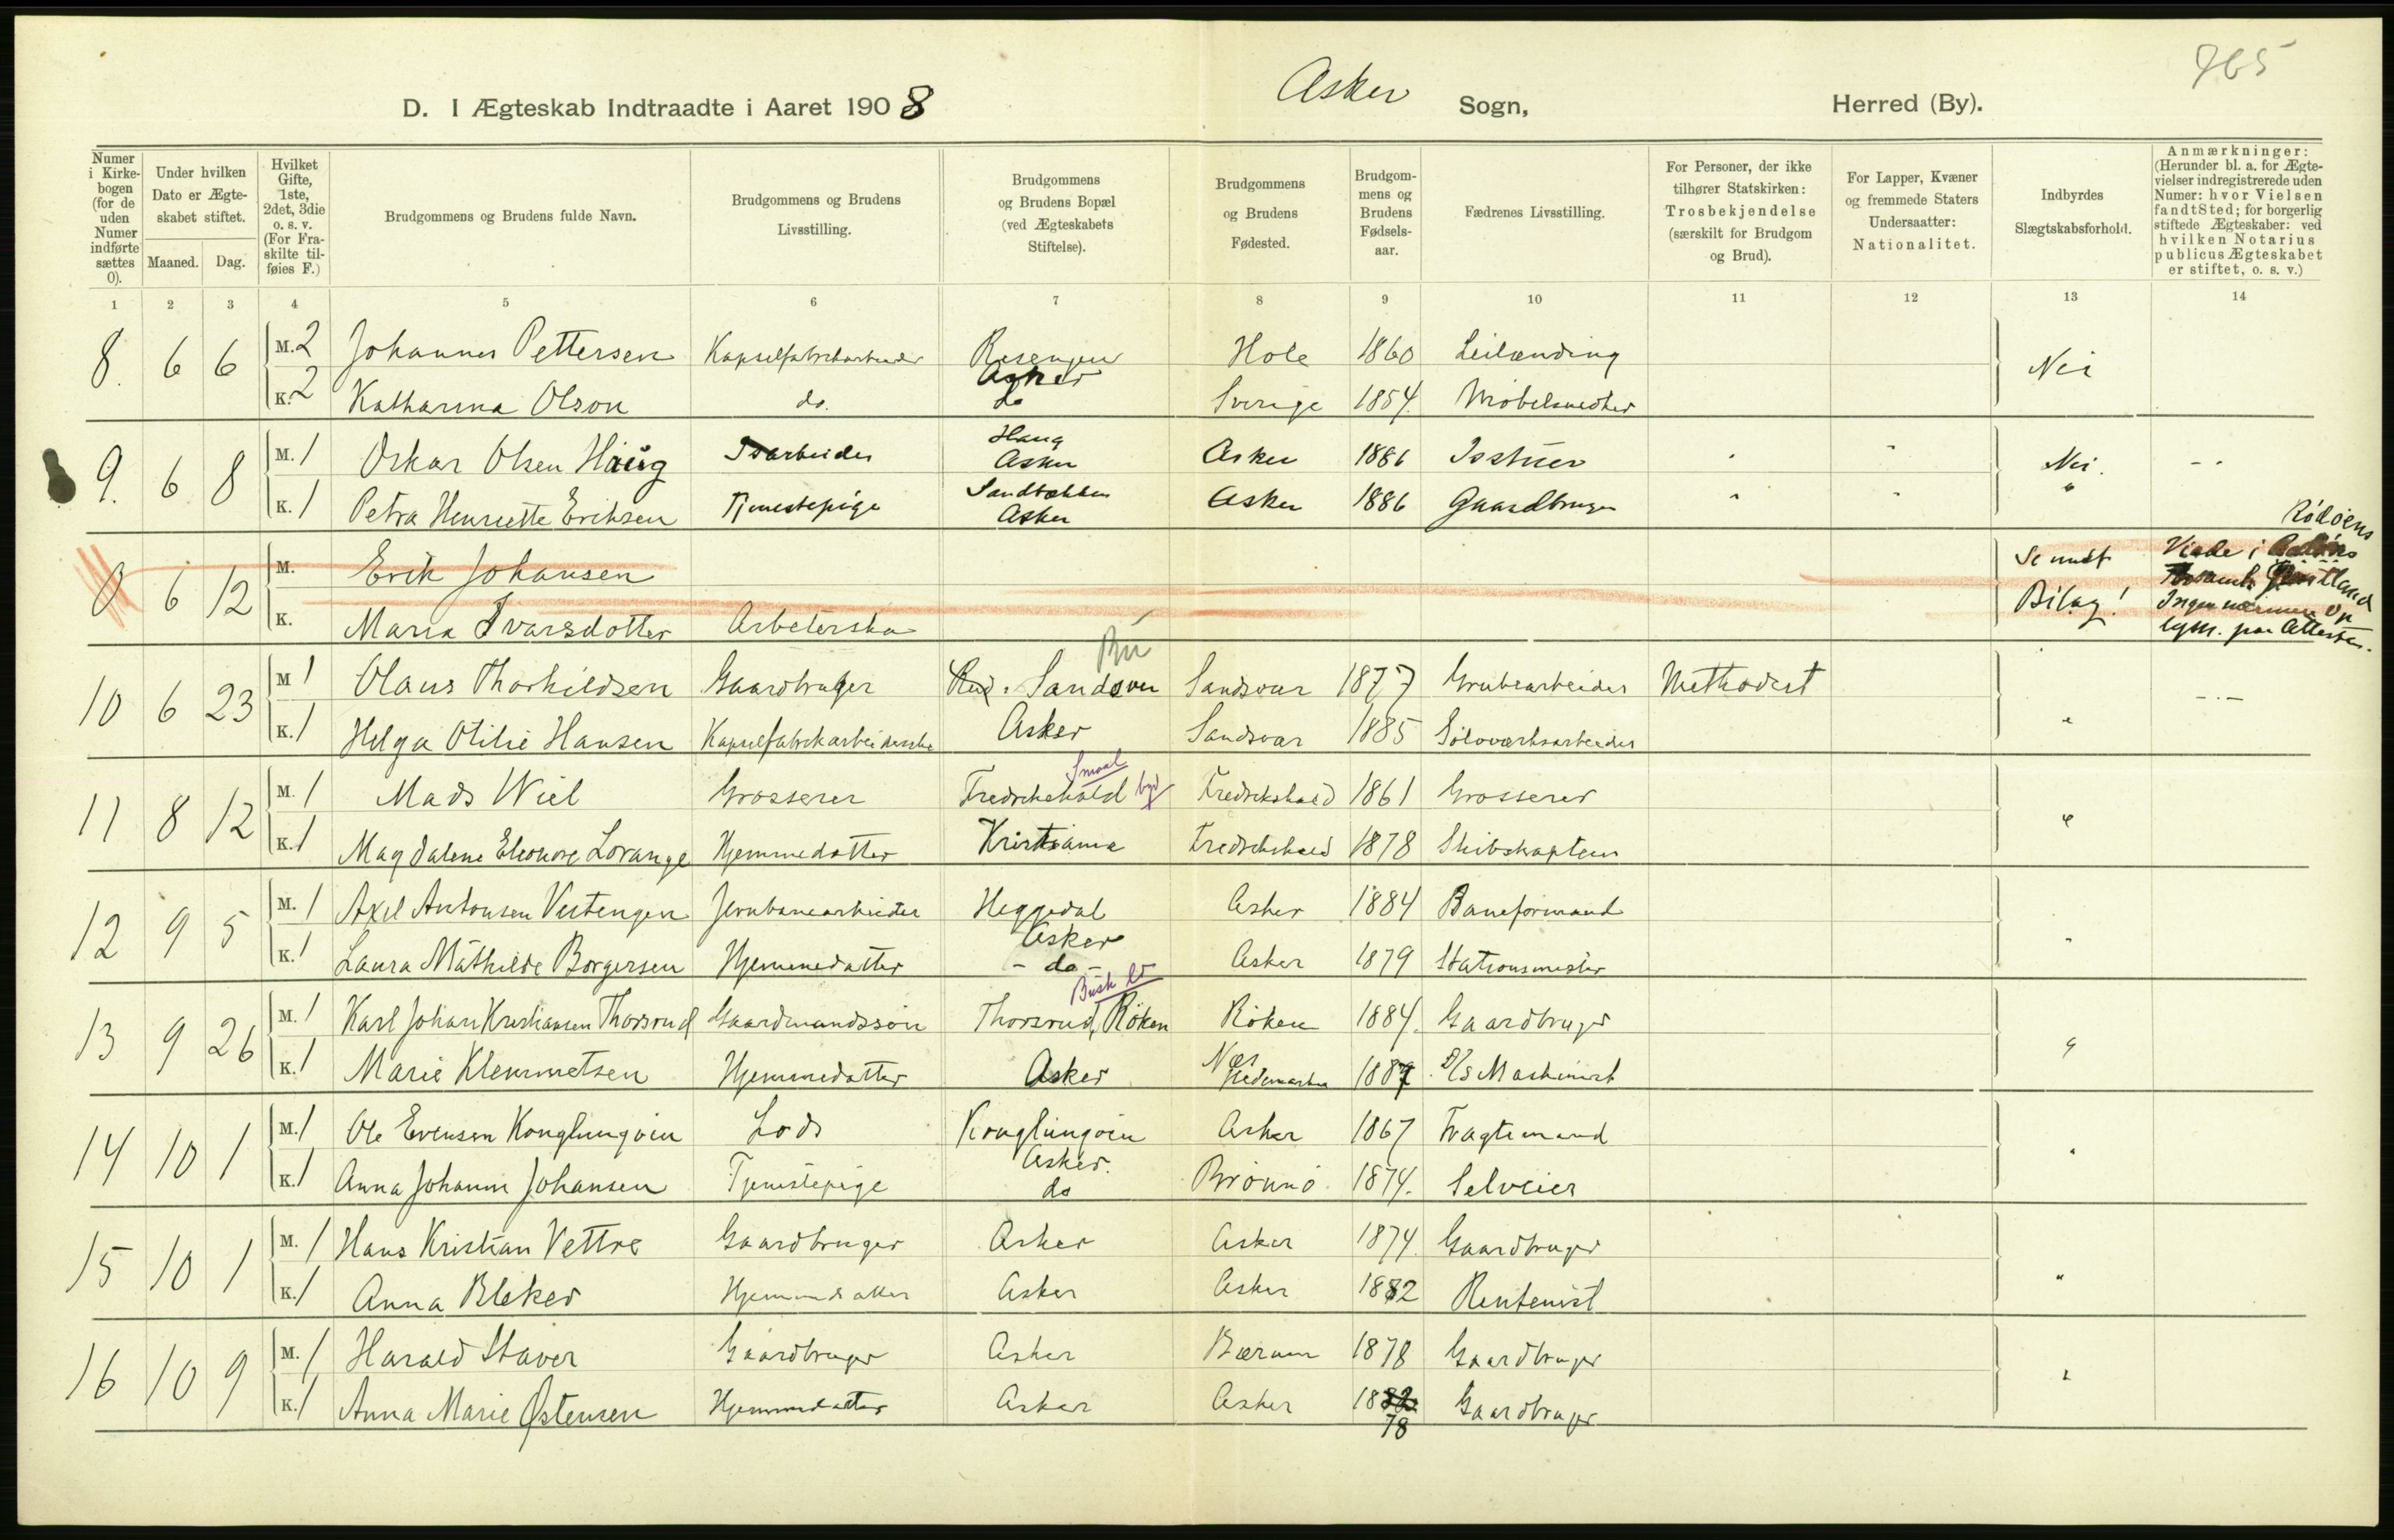 765
D. I Ægteskab Indtraadte i Aaret 1908 Asker Sogn, Herred (By).
Numer i Kirkebogen (for de uden Numer indførte sættes 0).
Under hvilken Dato er Ægteskabet stiftet.
Maaned. Dag.
Hvilket Gifte, 1ste, 2det, 3die o. s. v. (For Fraskilte tilføies F.)
Brudgommens og Brudens fulde Navn.
Brudgommens og Brudens Livsstilling.
Brudgommens og Brudens Bopæl (ved Ægteskabets Stiftelse).
Brudgommens og Brudens Fødested.
Brudgommens og Brudens Fødselsaar.
Fædrenes Livsstilling.
For Personer, der ikke tilhører Statskirken: Trosbekjendelse (særskilt for Brudgom og Brud).
For Lapper, Kvæner og fremmede Staters Undersaatter: Nationalitet.
Indbyrdes Slægtskabsforhold.
Anmærkninger: (Herunder bl. a. for Ægtevielser indregistrerede uden Numer: hvor Vielsen fandt Sted; for borgerlig stiftede Ægteskaber: ved hvilken Notarius publicus Ægteskabet er stiftet, o. s. v.)
1 2 3 4 5 6 7 8 9 10 11 12 13 14
8. 6 6 M. 2 Johannes Pettersen Kapselfabrikarbeider Resengen Asker Hole 1860 Leilænding Nei
K. 2 Katharina Olson do. do Sverige 1854. Möbelsnedker
9. 6 8 M. 1 Oskar Olsen Haug Isarbeider Haug Asker Asker 1886 Isstuer Nei. - -
K. 1 Petra Henriette Eriksen Tjenestepige Sandbakken Asker Asker 1886 Gaardbruger "
0 6 12 M. Erik Johansen Se undt Bilag! Rödöens Viede i Jämtland Ingen nærmere Op
K. Maria Ivarsdotter Arbeterska
10 6 23 M 1 Olaus Thorkildsen Gaardbruger Sandsvær Sandsvær 1877 Grubearbeider Methodist - . -
K. 1 Helga Otilie Hansen Kapselfabrikarbeiderske Asker Sandsvær 1885 Sölvværksarbeider "
11 8 12 M. 1 Mads Wiel Grosserer Fredrikshald Smaal Fredrikshald 1861 Grosserer
K. 1 Magdalene Eleonore Lorange Hjemmedatter Kristiania Fredrikshald 1878 Skibskaptein "
12 9 5 M. 1 Axel Antonsen Vestengen Jernbanearbeider Heggedal Asker Asker 1884 Baneformand
K. 1 Laura Mathilde Borgersen Hjemmedatter - do - Asker 1879 Stationsmester "
13 9 26 M. 1 Karl Johan Kristiansen Thorsrud Gaardmandssön Busk Thorsrud, Röken Röken 1884. Gaardbruger
K. 1 Marie Klemmetsen Hjemmedatter Asker Næs Hedemarken 1887 D/S Maskinist "
14 10 1 M. 1 Ole Evensen Konglungöen Lods Konglungöen Asker. Asker 1867 Fragtemand
K. 1 Anna Johanne Johansen Tjenestepige do Brönnö 1874. Selveier "
15 10 1 M. 1 Hans Kristian Vettre Gaardbruger Asker Asker 1874. Gaardbruger
K. 1 Anna Bleker Hjemmedatter Asker Asker 1882 Rentenist "
16 10 9 M. 1 Harald Staver Gaardbruger Asker Bærum 1878 Gaardbruger
K. 1 Anna Marie Østensen Hjemmedatter Asker Asker 1882 78 Gaardbruger